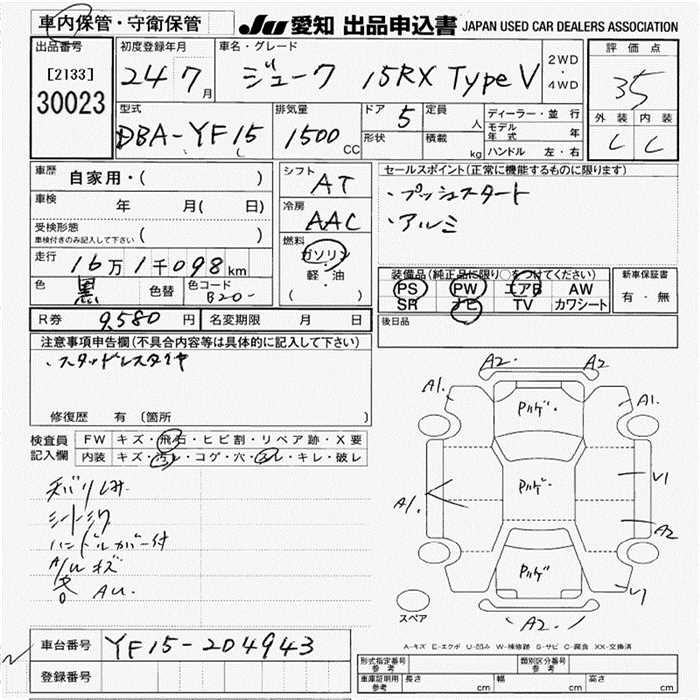 車内保管・守衛保管
JU 愛知 出品申込書 JAPAN USED CAR DEALERS ASSOCIATION
出品番号
[2133]
30023
初度登録年月
24 7月
車名・グレード
ジューク 15RX Type V
2WD
・
4WD
評価点
35
外装 内装
C C
型式
DBA-YF15
排気量
1500CC
ドア 5
形状
定員 人
積載 kg
ディーラー・並行
モデル年式 年
ハンドル 左・右
車歴 自家用・( )
車検 年 月( 日)
受検形態
車検付きのみ記入して下さい ( )
走行 16万1千098km
色 黒 色替 色コード B20-
シフト AT
冷房 AAC
燃料
ガソリン
・
軽・油
( )
セールスポイント(正常に機能するものに限ります)
・プッシュスタート
・アルミ
装備品(純正品に限り○をつけてください)
PS PW エアB AW
SR ナビ TV カワシート
新車保証書
有・無
後日品
R券 9,580円 名変期限 月 日
注意事項申告欄(不具合内容等は具体的に記入して下さい)
・スタッドレスタイヤ
修復歴 有(箇所 )
検査員記入欄
FW キズ・飛石・ヒビ割・リペア跡・X要
内装 キズ・汚レ・コゲ・穴・スレ・キレ・破レ
ハンドルカバー付
A/Uキズ
A2. A2
A1. A1.
Pルゲ.
A1. Pルゲ. V1
A2
Pルゲ V1
A2.
スペア
A-キズ E-エクボ U-凹み W-補修跡 S-サビ C-腐食 XX-交換済
車台番号 YF15-204943
登録番号
形式指定番号 参考
類別区分番号 参考
車庫証明用 参考 長さ cm 幅 cm 高さ cm